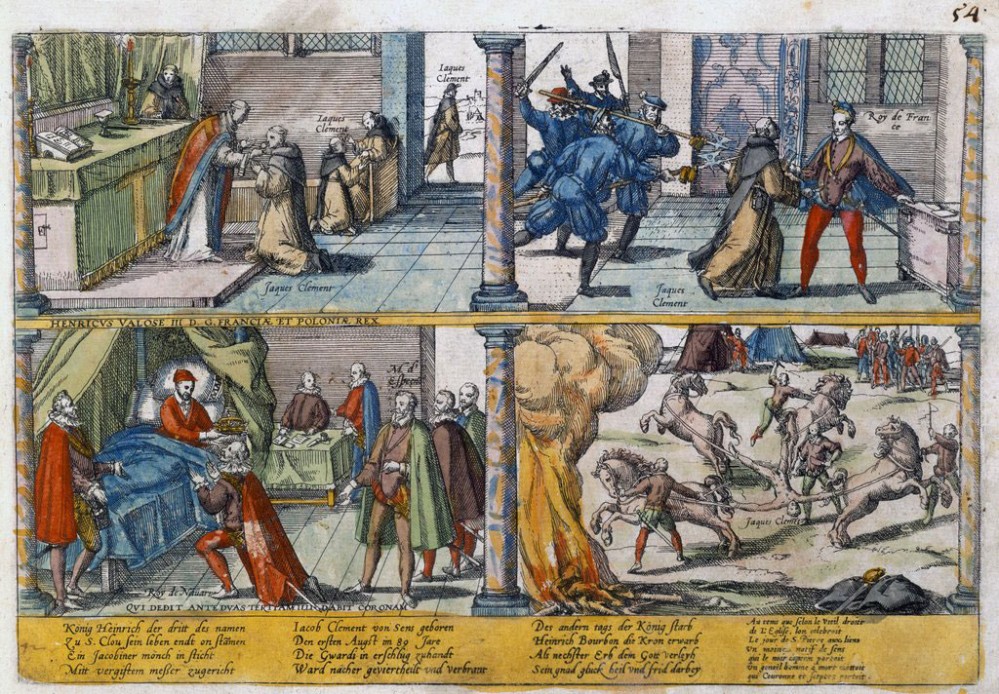 54.
Iaques
Clement
Iaques
Clement
Jaques Clement
Roy de Fran
ce
Jaques
Clement
HENRICVS VALOSE III D. G. FRANCIÆ ET POLONIÆ REX
Roy de Navar
Jaques Clement
QVI DEDIT ANTE DVAS CORONAM
König Heinrich der dritt des namen
Zu S. Clou sein leben endt on stamen
Ein Jacobiner mönch in sticht
Mitt vergiftem messer zugericht
Iacob Clement von Sens geboren
Den ersten Augst im 89 Jare
Die Gwardi in erschlug zuhandt
Ward nacher gevertheilt vnd verbrant
Des andern tags der König starb
Heinrich Bourbon die Kron erwarb
Als nechster Erb dem Gott verleyh
Sein gnad glück heil vnd frid darbey
Au temps que selon le
de L'Eglise, lon celebroit
Le jour de S. Pierre aux liens
Vn moine natif de sens
qui le portoit
Vn gentil homme a mort mettoit
qui Couronne et sceptre portoit.